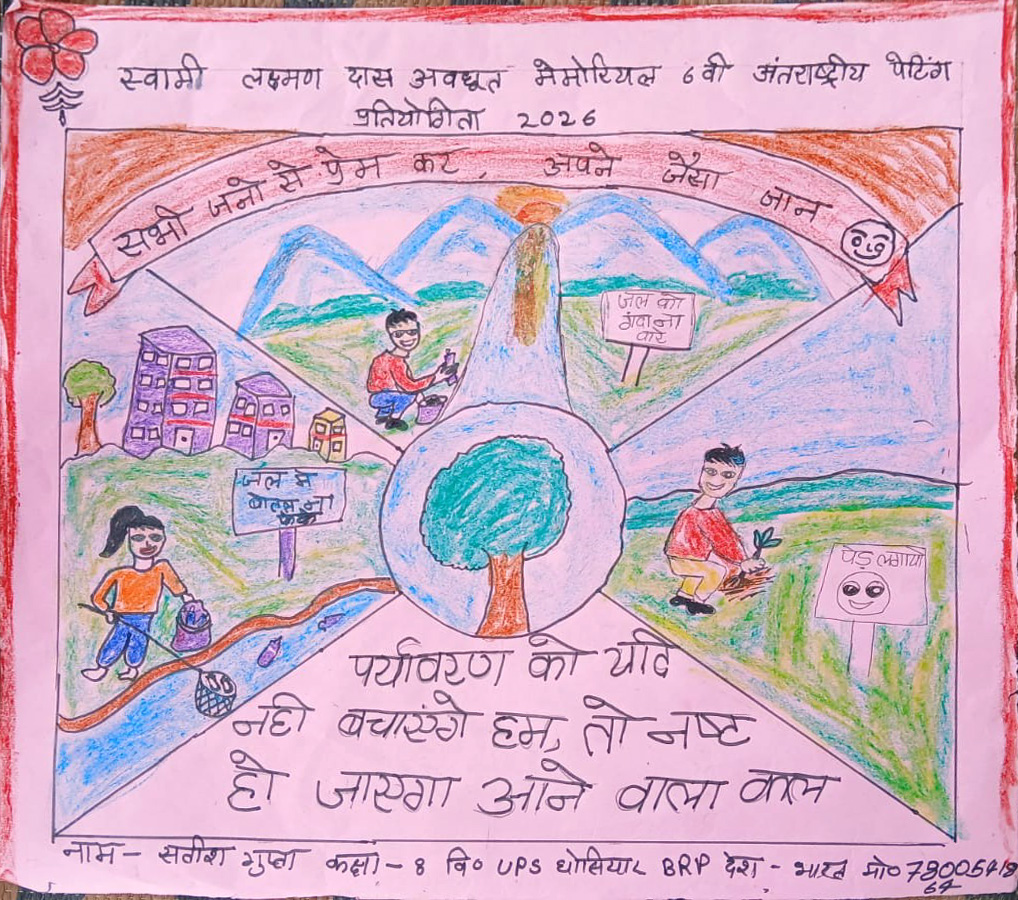 स्वामी लक्ष्मण दास अवधूत मेमोरियल 6वी अंतराष्ट्रीय पेटिंग
प्रतियोगिता 2026
सभी जनो से प्रेम कर, अपने जैसा जान
जल को
गंवा ना
यारे
जल मे
ना
फेंके
पेड़ लगायो
पर्यावरण को यदि
नही बचाएंगे हम, तो नष्ट
हो जाएगा आने वाला कल
नाम - सतीश गुप्ता कक्षा - 8 वि० UPS घोसियार BRP देश - भारत मो० 78005418
64